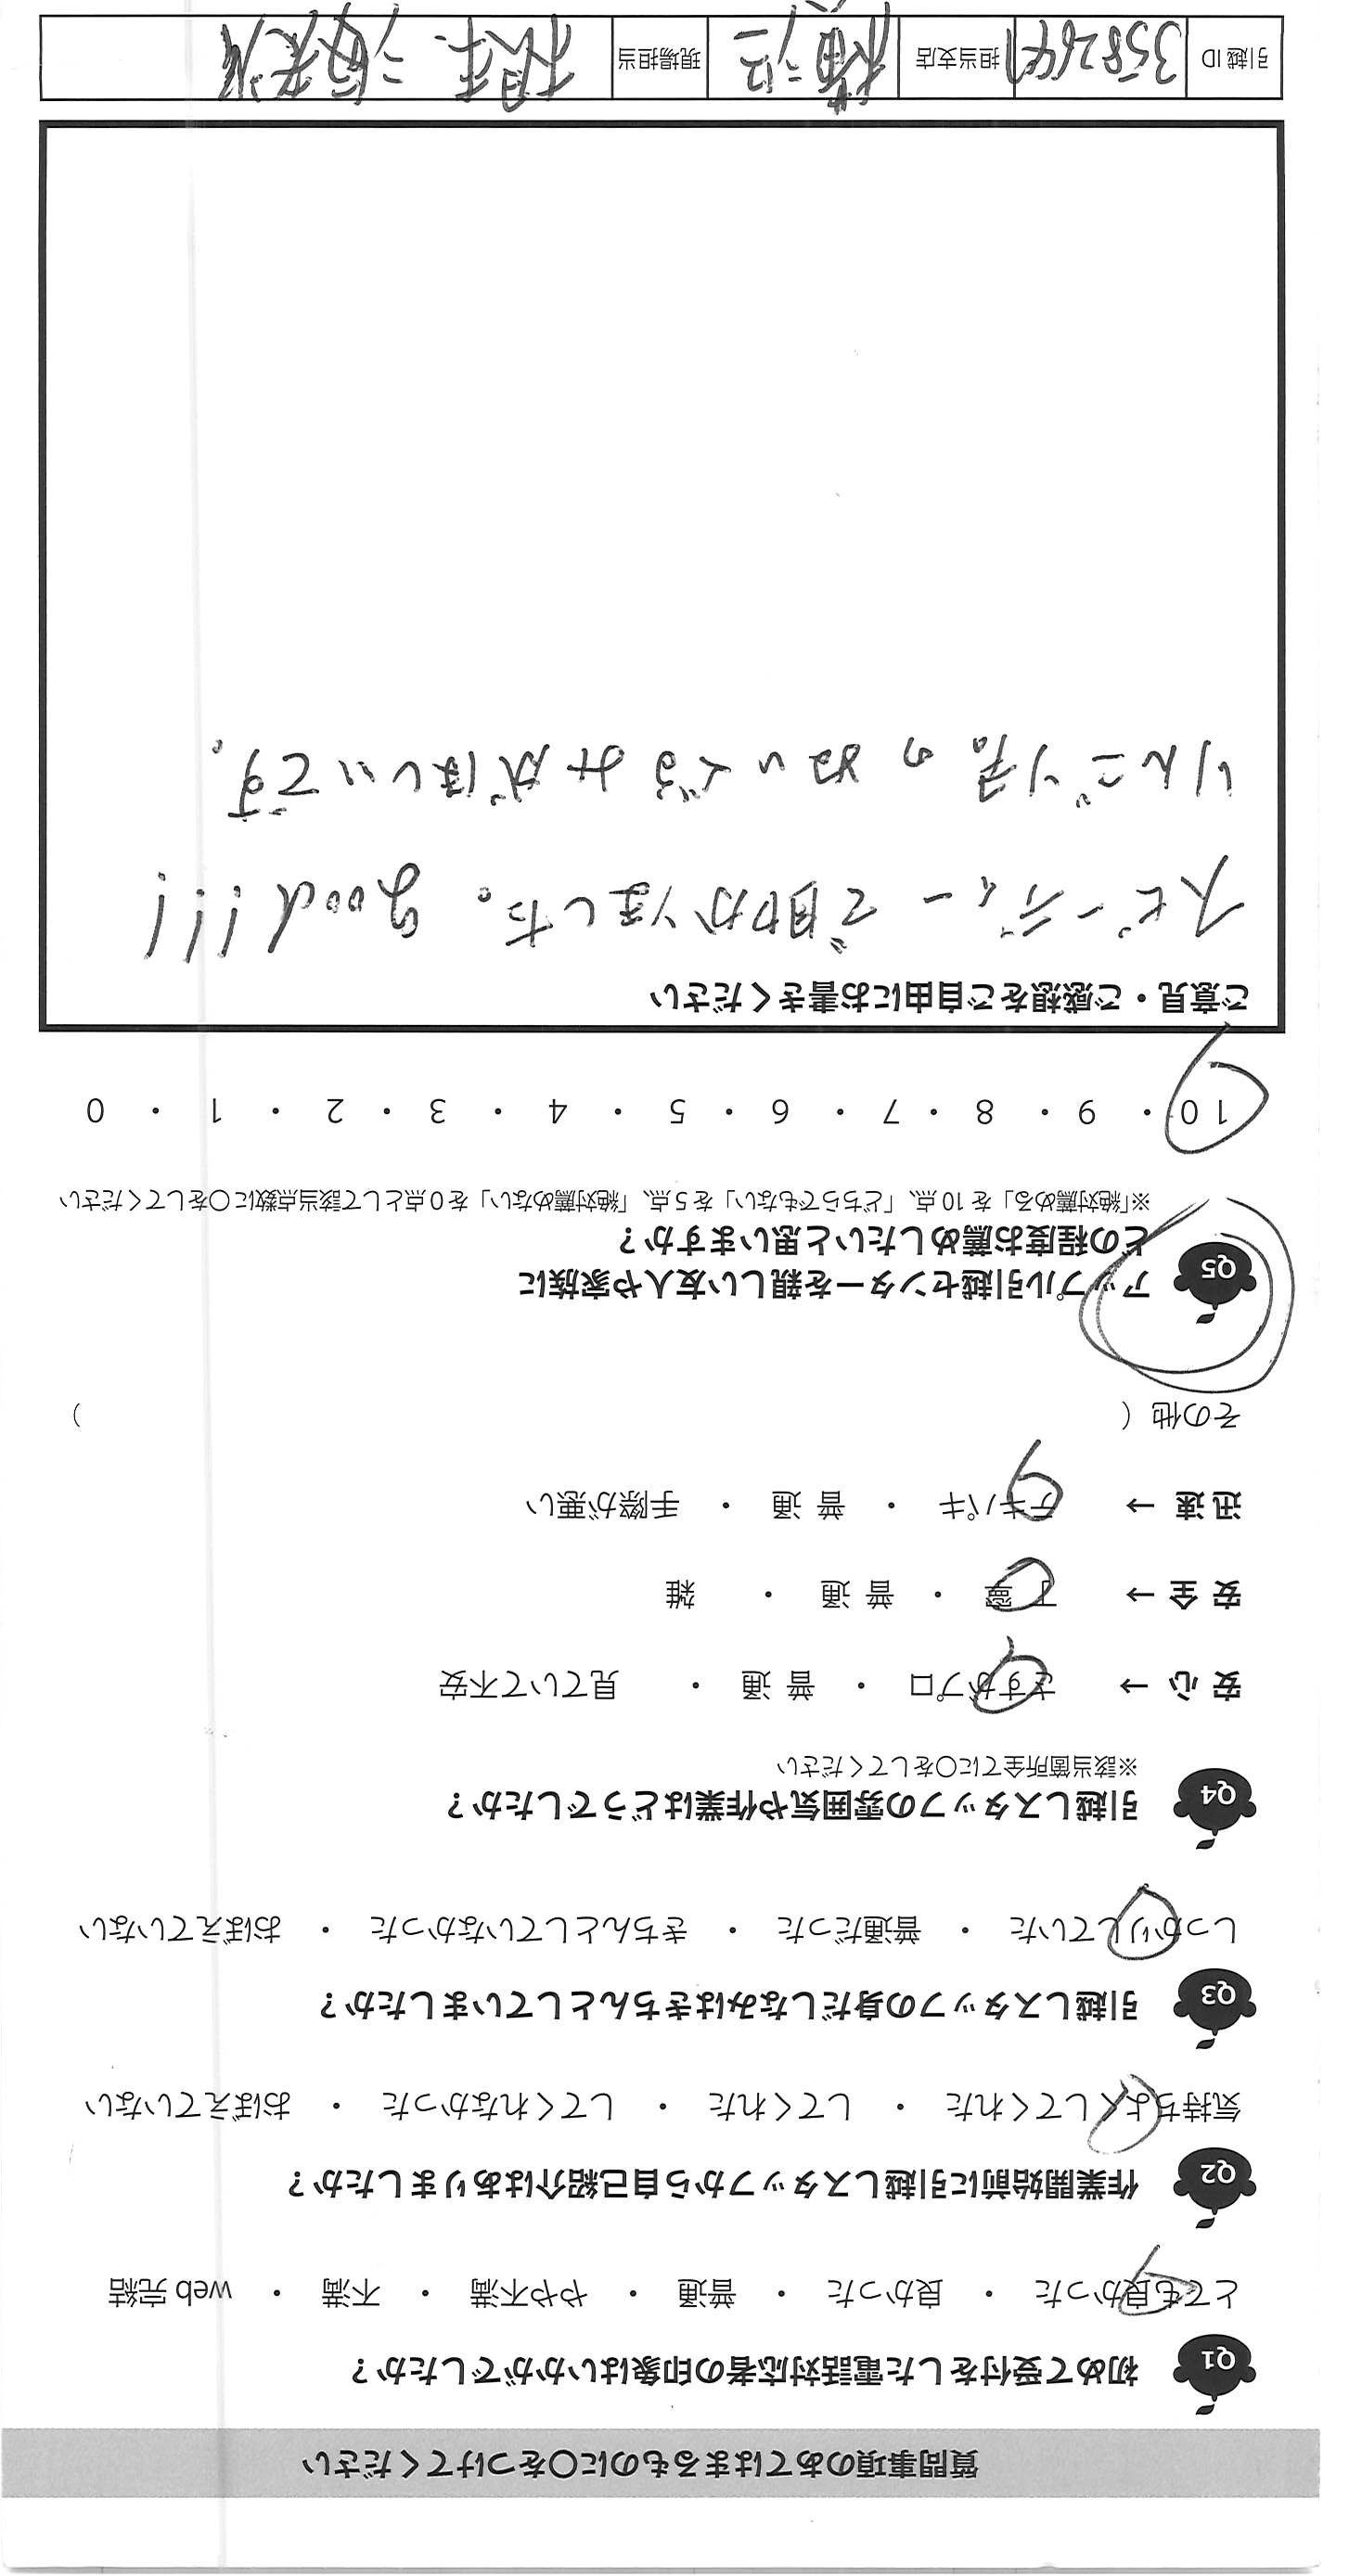 質問事項のあてはまるものに○をつけてください
Q1 初めて受付をした電話対応者の印象はいかがでしたか?
とても良かった ・ 良かった ・ 普通 ・ やや不満 ・ 不満 ・ web 完結
Q2 作業開始前に引越しスタッフから自己紹介はありましたか?
気持ちよくしてくれた ・ してくれた ・ してくれなかった ・ おぼえていない
Q3 引越しスタッフの身だしなみはきちんとしていましたか?
しっかりしていた ・ 普通だった ・ きちんとしていなかった ・ おぼえていない
Q4 引越しスタッフの雰囲気や作業はどうでしたか?
※該当箇所全てに○をしてください
安 心 → さすがプロ ・ 普 通 ・ 見ていて不安
安 全 → 丁 寧 ・ 普 通 ・ 雑
迅 速 → テキパキ ・ 普 通 ・ 手際が悪い
その他 ( )
Q5 アップル引越センターを親しい友人や家族に
どの程度お薦めしたいと思いますか?
※「絶対薦める」を 10 点、「どちらでもない」を 5 点、「絶対薦めない」を 0 点として該当点数に○をしてください
10 ・ 9 ・ 8 ・ 7 ・ 6 ・ 5 ・ 4 ・ 3 ・ 2 ・ 1 ・ 0
ご意見・ご感想をご自由にお書きください
スピーディーで助かりました。good!!!
りんごリ君のぬいぐるみがほしいです。
引越 ID 3582647 担当支店 横二 現場担当